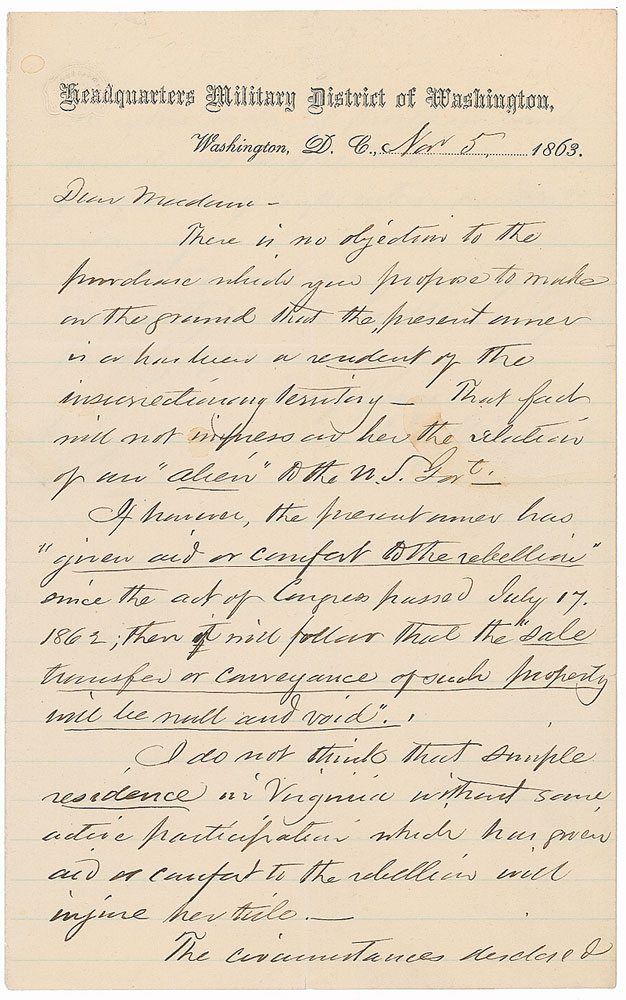 Headquarters Military District of Washington,
Washington, D. C., Nov 5, 1863.
Dear Madam –
There is no objection to the
purchase which you propose to make
on the ground that the present owner
is or has been a resident of the
insurrectionary territory — That fact
will not impress on her the relation
of an "alien" to the U.S. Govt.
If however, the present owner has
"given aid or comfort to the rebellion"
since the act of Congress passed July 17.
1862; then it will follow that the "sale
transfer or conveyance of such property
will be null and void".
I do not think that simple
residence in Virginia without some
active participation which has given
aid or comfort to the rebellion will
injure her title. —
The circumstances disclosed